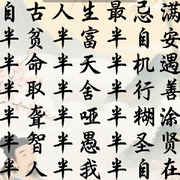 自古人生最忌满
半贫半富半自安
半命半天半机遇
半取半舍半行善
半聋半哑半糊涂
半智半愚半圣贤
半人半我半自在